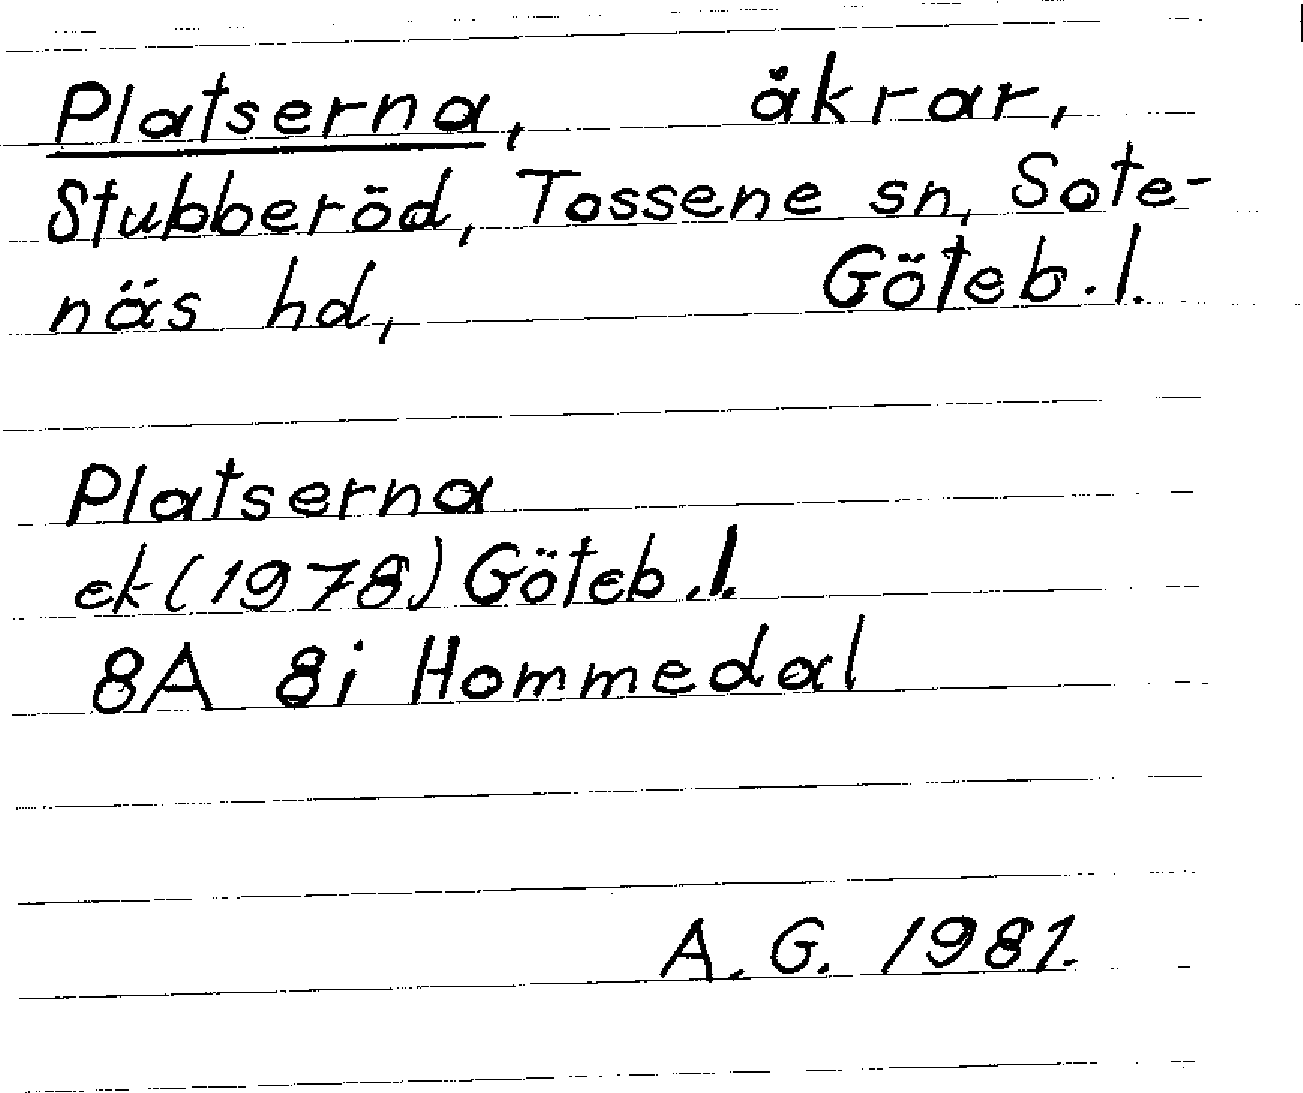 Platserna, åkrar,
Stubberöd, Tossene sn, Sote-
näs hd, Göteb.l.
Platserna
ek (1978) Göteb.l.
8A 8i Hommedal
A.G. 1981.